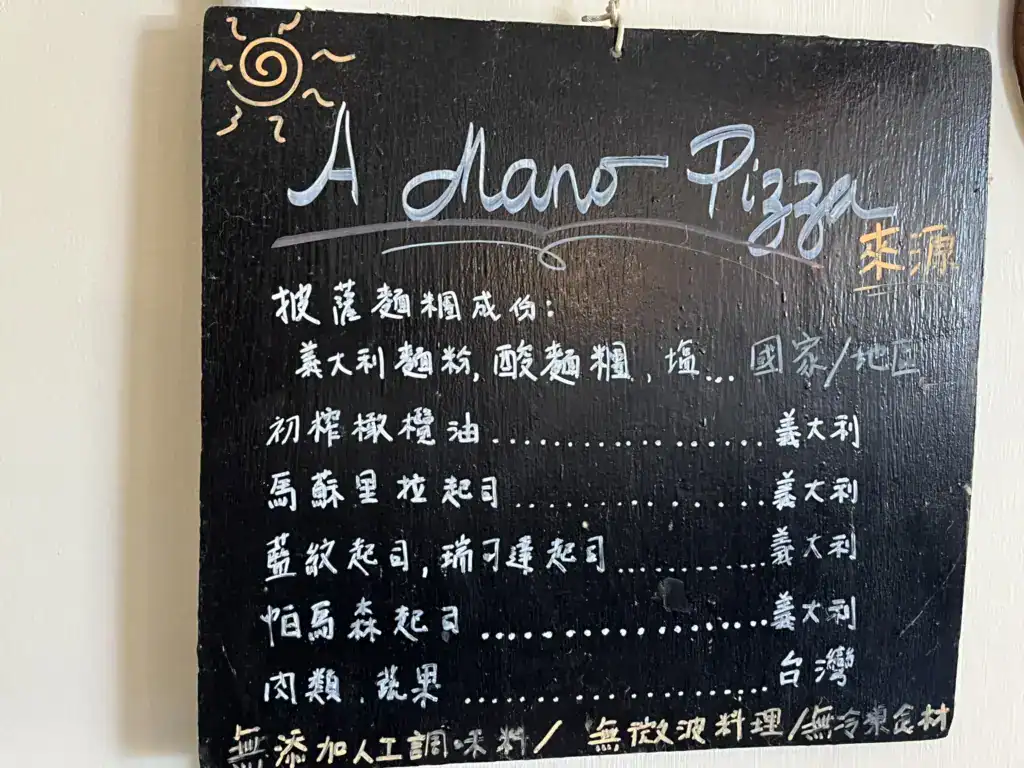 A Mano Pizza
來源
披薩麵糰成份:
義大利麵粉,酸麵糰,塩... 國家/地区
初榨橄欖油.................義大利
馬蘇里拉起司.................義大利
藍紋起司,瑞可達起司............義大利
帕馬森起司.....................義大利
肉類.蔬果....................台灣
無添加人工調味料/ 無微波料理/無冷凍食材